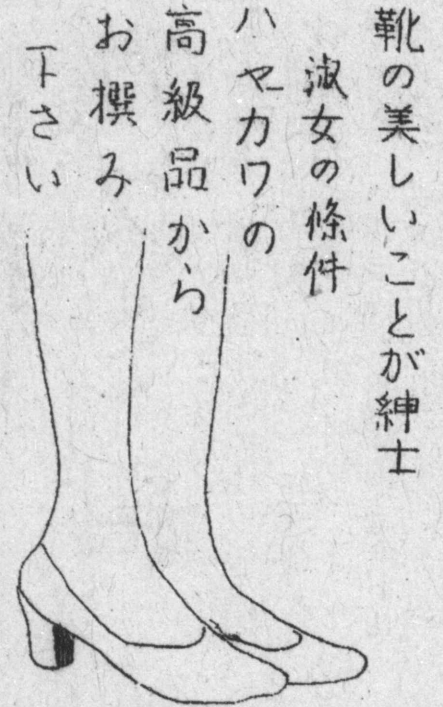 靴の美しいことが紳士
淑女の條件
ハヤカワの
高級品から
お撰み
下さい